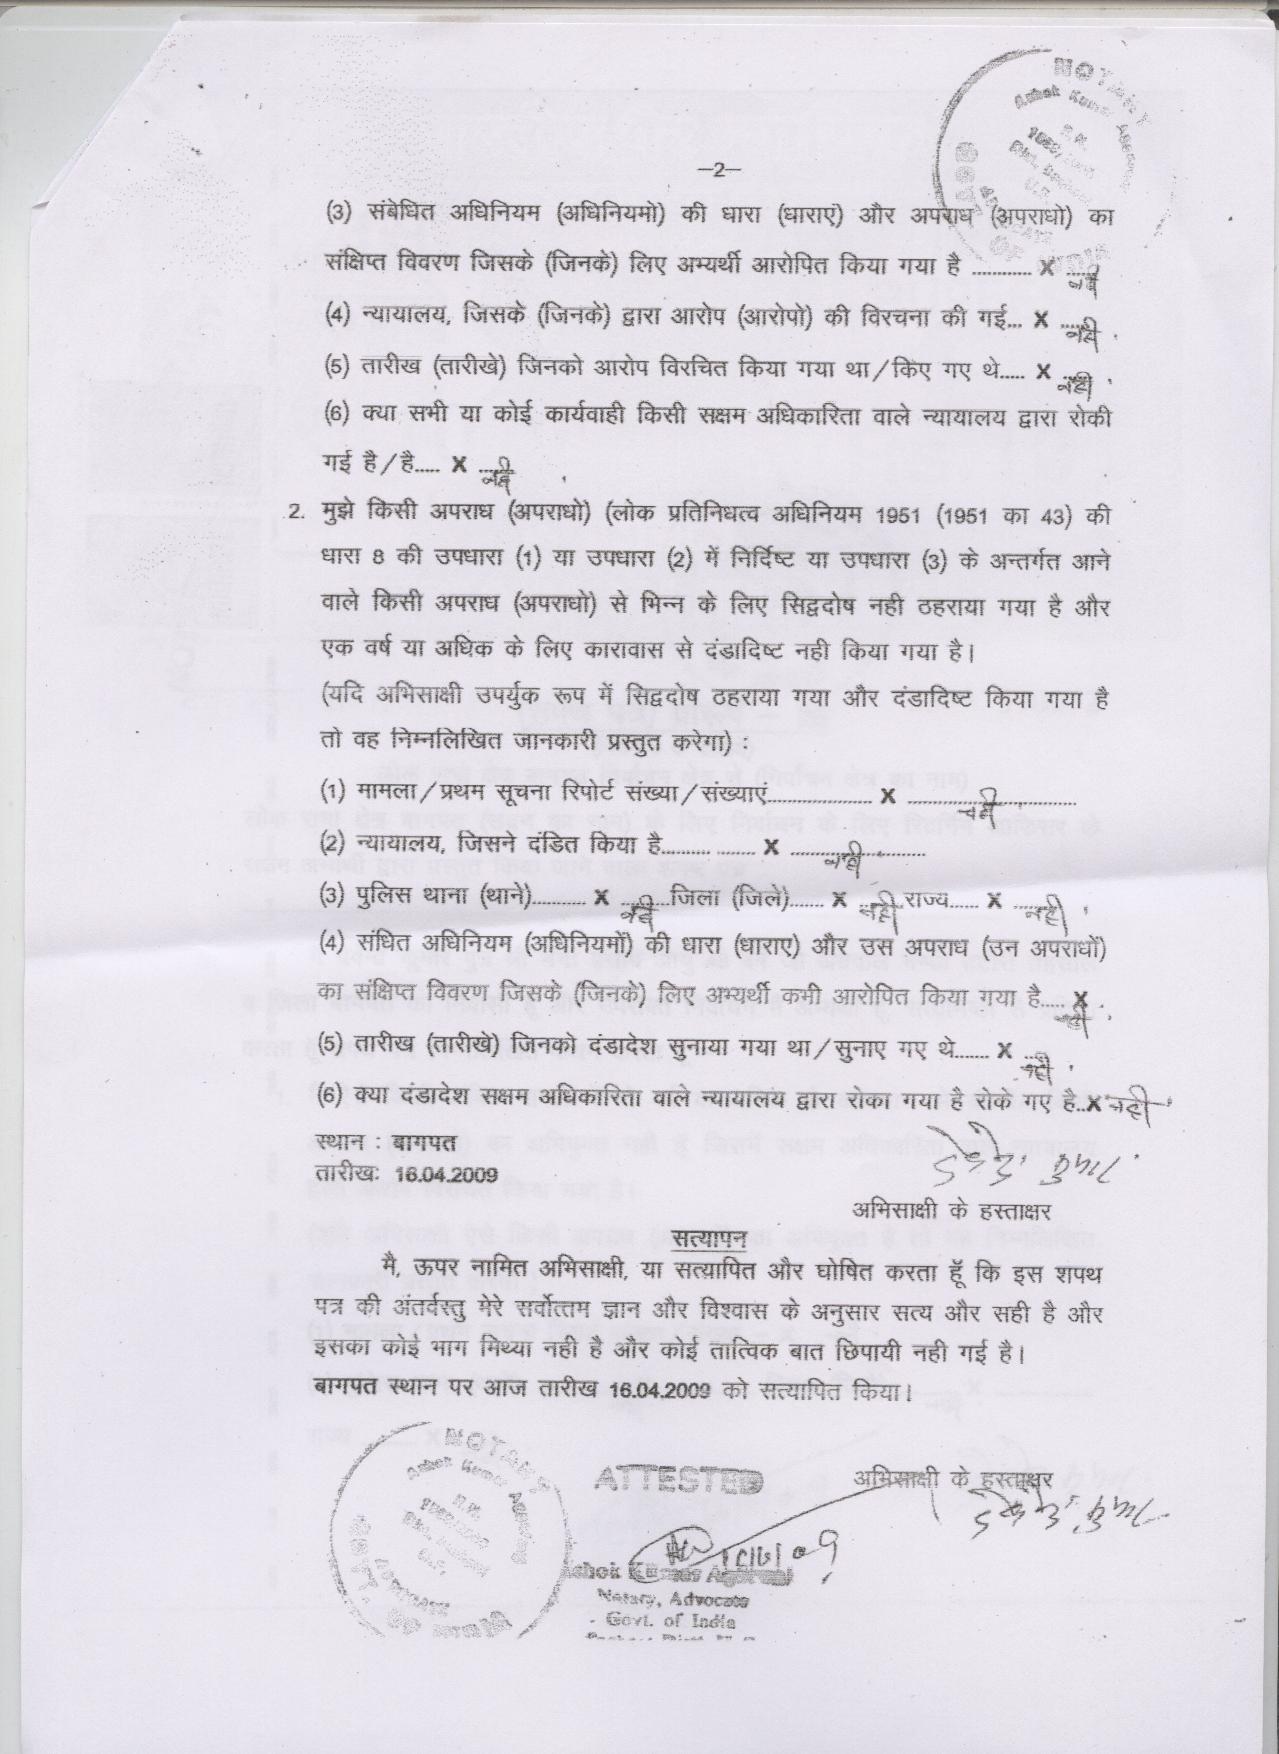 NOTARY
Ashok Kumar
–2–
(3) संबेधित अधिनियम (अधिनियमो) की धारा (धाराएं) और अपराध (अपराधो) का
संक्षिप्त विवरण जिसके (जिनके) लिए अभ्यर्थी आरोपित किया गया है ............ X ...... नहीं
(4) न्यायालय, जिसके (जिनके) द्वारा आरोप (आरोपो) की विरचना की गई... X ...... नहीं
(5) तारीख (तारीखे) जिनको आरोप विरचित किया गया था/किए गए थे..... X ...... नहीं
(6) क्या सभी या कोई कार्यवाही किसी सक्षम अधिकारिता वाले न्यायालय द्वारा रोकी
गई है/है..... X ...... नहीं
2. मुझे किसी अपराध (अपराधो) (लोक प्रतिनिधत्व अधिनियम 1951 (1951 का 43) की
धारा 8 की उपधारा (1) या उपधारा (2) में निर्दिष्ट या उपधारा (3) के अन्तर्गत आने
वाले किसी अपराध (अपराधो) से भिन्न के लिए सिद्वदोष नही ठहराया गया है और
एक वर्ष या अधिक के लिए कारावास से दंडादिष्ट नही किया गया है।
(यदि अभिसाक्षी उपर्युक रूप में सिद्वदोष ठहराया गया और दंडादिष्ट किया गया है
तो वह निम्नलिखित जानकारी प्रस्तुत करेगा) :
(1) मामला/प्रथम सूचना रिपोर्ट संख्या/संख्याएं..................... X .................................. नहीं
(2) न्यायालय, जिसने दंडित किया है.......... ........ X ........................... नहीं
(3) पुलिस थाना (थाने)........... X .......... नहीं जिला (जिले)....... X ...... नही राज्य...... X ...... नही
(4) संधित अधिनियम (अधिनियमों) की धारा (धाराए) और उस अपराध (उन अपराधों)
का संक्षिप्त विवरण जिसके (जिनके) लिए अभ्यर्थी कभी आरोपित किया गया है..... X नहीं
(5) तारीख (तारीखे) जिनको दंडादेश सुनाया गया था/सुनाए गए थे....... X ..... नही
(6) क्या दंडादेश सक्षम अधिकारिता वाले न्यायालय द्वारा रोका गया है रोके गए है..X नही
स्थान : बागपत
तारीखः 16.04.2009
अभिसाक्षी के हस्ताक्षर
सत्यापन
मै, ऊपर नामित अभिसाक्षी, या सत्यापित और घोषित करता हूॅ कि इस शपथ
पत्र की अंतर्वस्तु मेरे सर्वोत्तम ज्ञान और विश्वास के अनुसार सत्य और सही है और
इसका कोई भाग मिथ्या नही है और कोई तात्विक बात छिपायी नही गई है।
बागपत स्थान पर आज तारीख 16.04.2009 को सत्यापित किया।
NOTARY
Ashok Kumar
ATTESTED
अभिसाक्षी के हस्ताक्षर
Ashok Kumar Agarwal
Notary, Advocate
Govt. of India